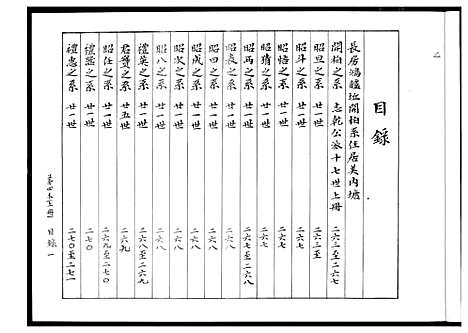 目錄
長房鴻 開柏系住居美內塘
開柏之系 志乾公派十七世上冊 二六三至二六七
昭旦之系 廿一世 二六三至
昭斗之系 廿一世 二六七
昭悟之系 廿一世 二六七
昭猜之系 廿一世 二六七
昭再之系 廿一世 二六七至二六八
昭表之系 廿一世 二六八
昭四之系 廿一世 二六八
昭成之系 廿一世 二六八
昭次之系 廿一世 二六八
昭八之系 廿一世 二六八
禮英之系 廿一世 二六八至二六九
君寶之系 廿五世 二六九
昭任之系 廿一世 二六九至二七〇
禮 之系 廿一世 二七〇
禮惠之系 廿一世 二七〇至二七一
目錄 一